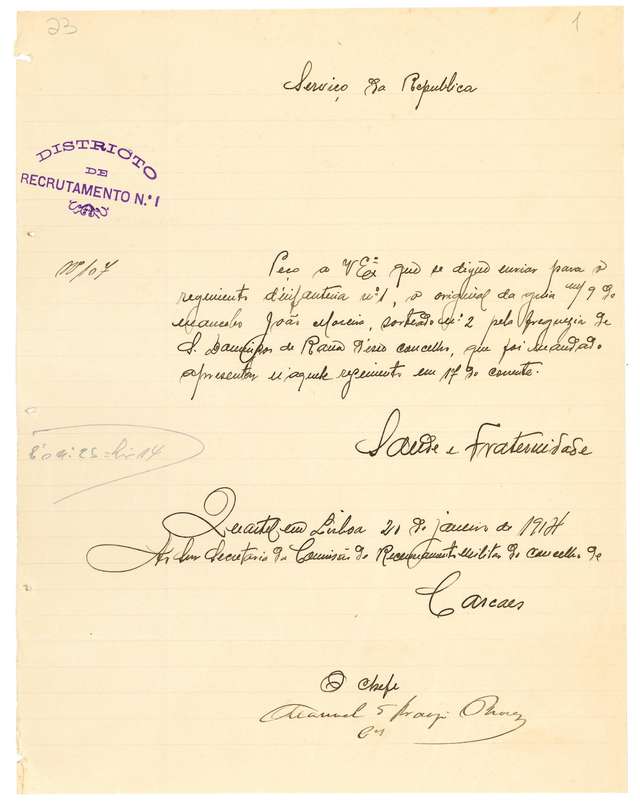 23
1
Serviço da Republica
DISTRICTO
DE
RECRUTAMENTO N.º 1
Nº 107
Peço a V Exª que se digne enviar para o
regimento d'infanteria nº 1, o original da guia nº 9 do
mancebo João Moreira, sorteado nº 2 pela freguezia de
S. Domingos de Rana d'esse concelho, que foi mandado
apresentar n'aquele regimento em 17 do corrente.
Saude e Fraternidade
Quartel em Lisboa 20 de janeiro de 1914
Ao Snr Secretario da Comissão de Recenseamento Militar do concelho de
Cascaes
O Chefe
Manuel